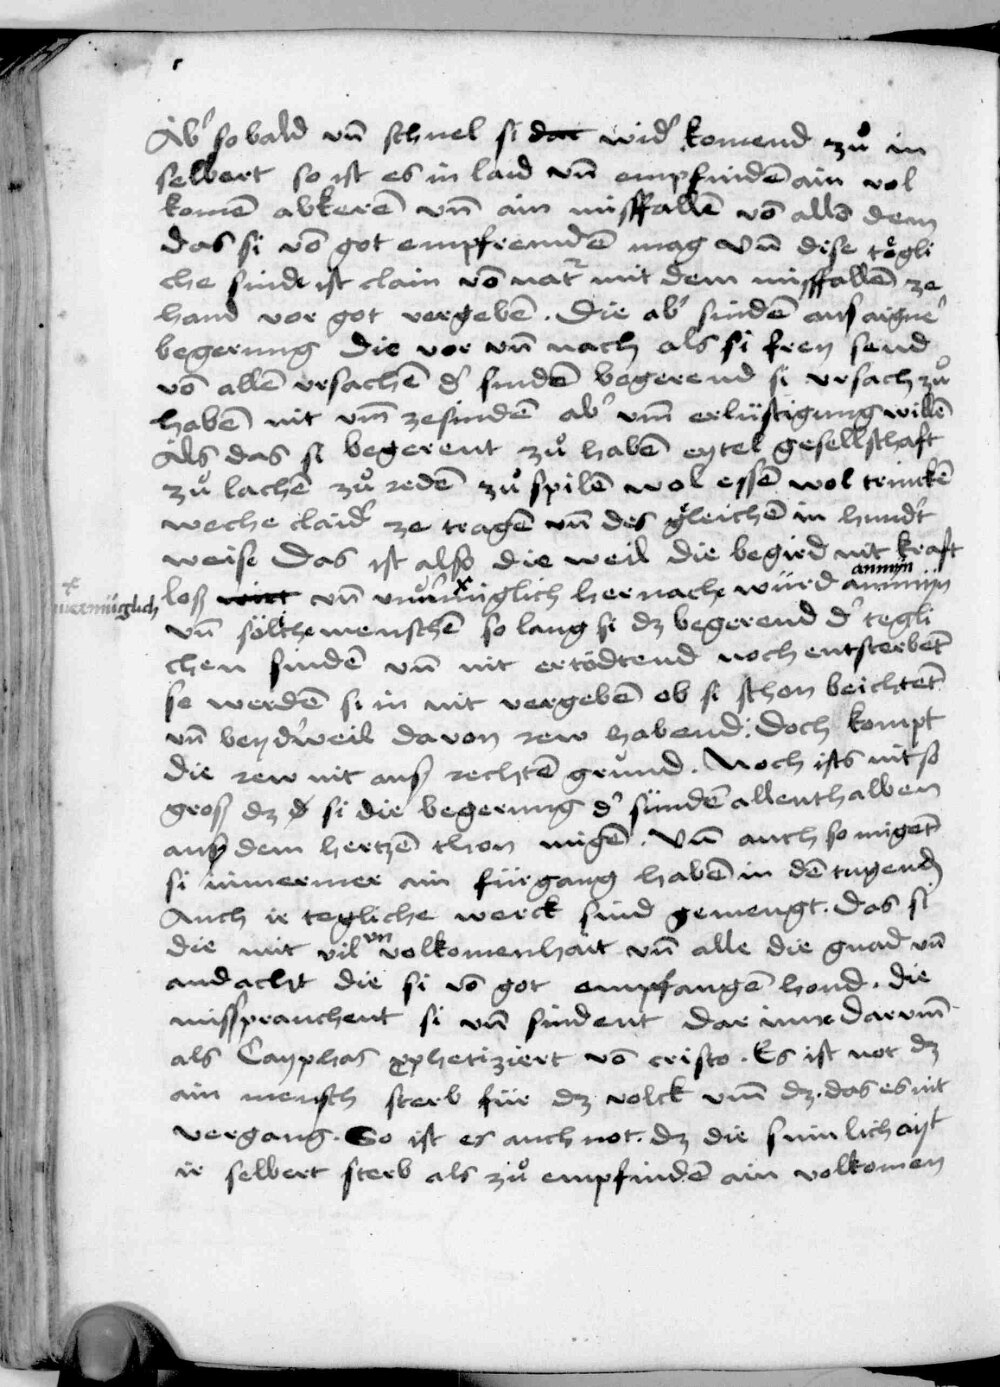 Ab' so bald vn̄ schnel si dar wid' komend zů in
selbert so ist es in laid vn̄ empfindē ain vol
komē abkerē vn̄ ain missfallē vō allē dem
das si vō got empfremdē mag Vn̄ dise tögli
che sindt ist clain vō nat' mit dem missfallē ze
hand vor got vergebē. Die ab' sindē aus aigne'
begerung Die vor vn̄ nach als si frey send
vō allē vrsachē d' sindē begerend si vrsach zů
habē nit vm̄ zesindē ab' vm̄ erlüstigung willē
Als das si begerent zů habē eytel gesellschaft
zů lachē zů redē zů spilē wol essē wol trinckē
weche claid' ze tragē vn̄ des gleichē in hund't
weise Das ist also die weil die begird nit kraft
annijn
loß wirt vn̄ vnü müglich hernache würd
vn̄ sölche menschē so lang si dz begerend d' tegli
chen sindē vn̄ nit ertödtend noch entsterbet̄
se werdē si in nit vergebē ob si schon beichtet̄
vn̄ bey d'weil davon rew habend: Doch kompt
die rew nit auß rechtē grund. Noch ists nit so
groß dz si die begerung d' sündē allenthalben
auß dem hertzē thon migē. Vn̄ auch so miget̄
si nimermer ain fürgang habē in dē tugend
Auch ir tegliche werck sind gemengt. Das si
vn
die mit vil volkomenhait vn̄ alle die gnad vn̄
andacht die si vō got empfangē hond. die
missprauchent si vn̄ sindent dar inne Darvm̄
als Cayphas ꝓphetiziert vō cristo. Es ist not dz
ain mensch sterb für dz volck vm̄ dz. das es nit
vergang. So ist es auch not. dz die sinlichayt
ir selbert sterb als zů empfindē ain volkomen